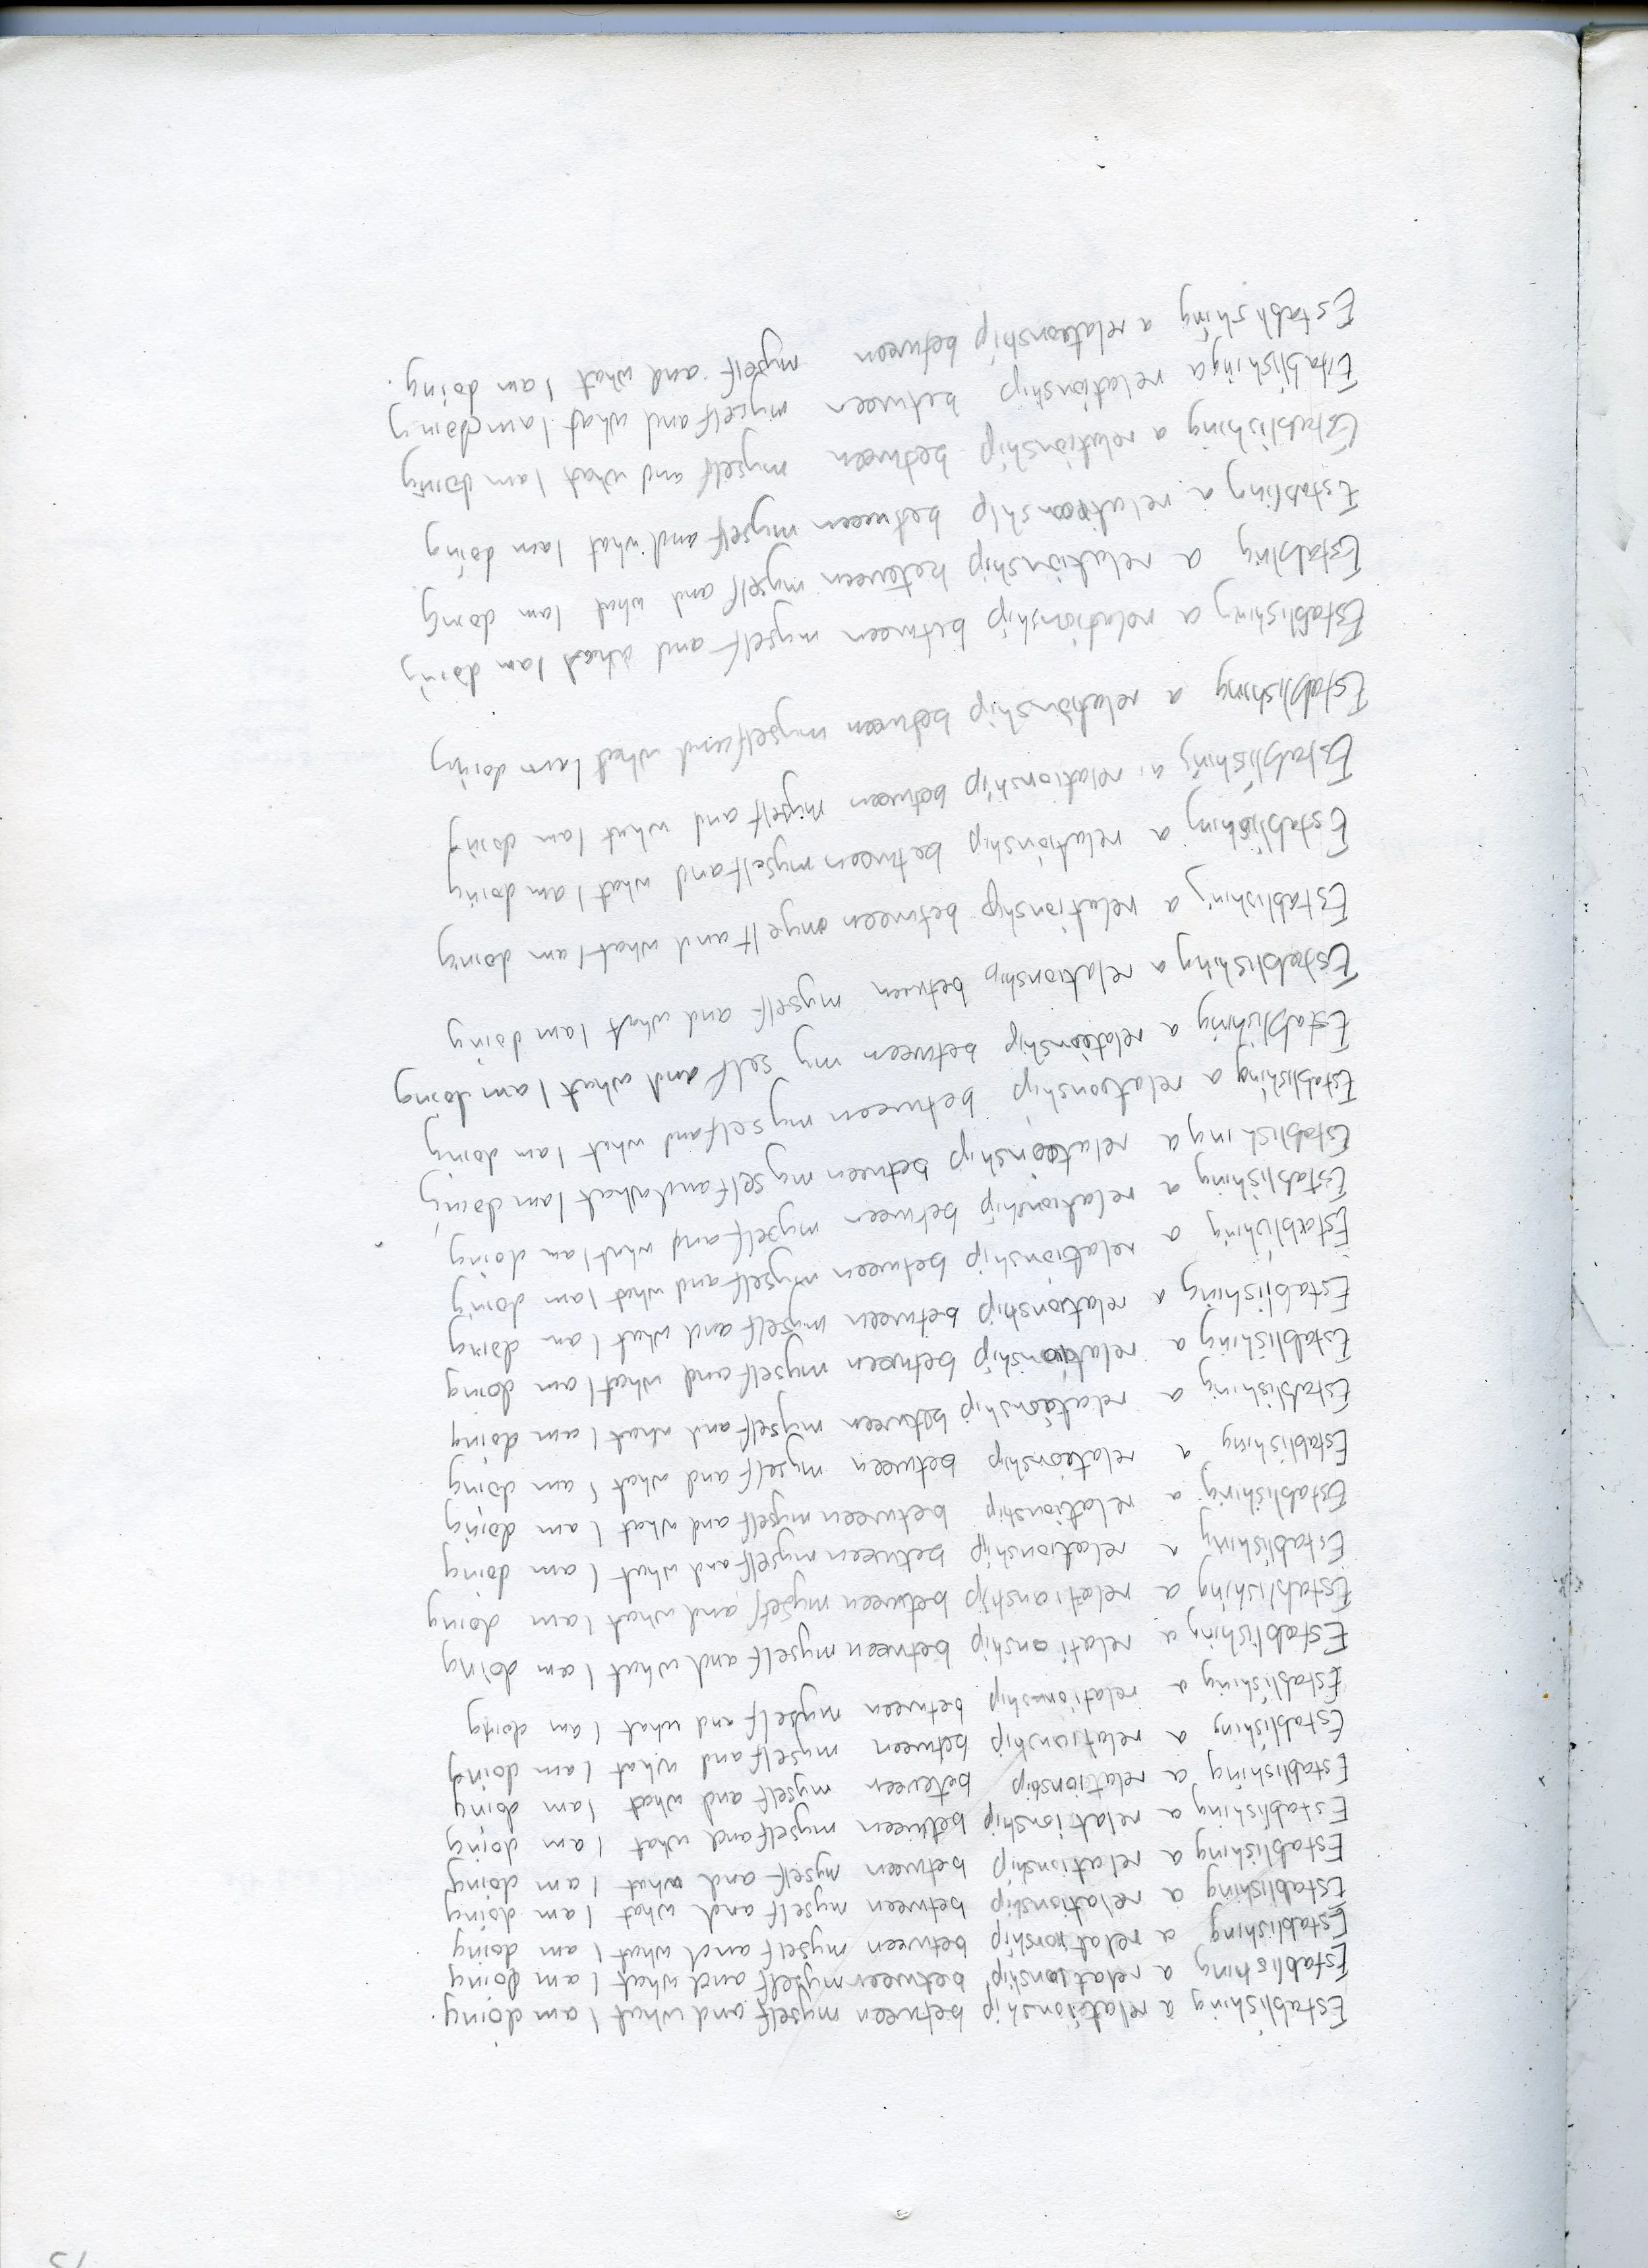 Establishing a relationship between myself and what I am doing.
Establishing a relationship between myself and what I am doing
Establishing a relationship between myself and what I am doing
Establishing a relationship between myself and what I am doing
Establishing a relationship between myself and what I am doing
Establishing a relationship between myself and what I am doing
Establishing a relationship between myself and what I am doing
Establishing a relationship between myself and what I am doing
Establishing a relationship between myself and what I am doing
Establishing a relationship between myself and what I am doing
Establishing a relationship between myself and what I am doing
Establishing a relationship between myself and what I am doing
Establishing a relationship between myself and what I am doing
Establishing a relationship between myself and what I am doing
Establishing a relationship between myself and what I am doing
Establishing a relationship between myself and what I am doing
Establishing a relationship between myself and what I am doing
Establishing a relationship between myself and what I am doing
Establishing a relationship between myself and what I am doing
Establishing a relationship between my self and what I am doing
Establishing a relationship between my self and what I am doing
Establishing a relationship between my self and what I am doing
Establishing a relationship between myself and what I am doing
Establishing a relationship between myelf and what I am doing
Establishing a relationship between myself and what I am doing
Establishing a relationship between myself and what I am doing
Establishing a relationship between myself and what I am doing
Establishing a relationship between myself and what I am doing
Establing a relationship between myself and what I am doing
Establing a relationship between myself and what I am doing
Establishing a relationship between myself and what I am doing
Establishing a relationship between myself and what I am doing
Establishing a relationship between myself and what I am doing.